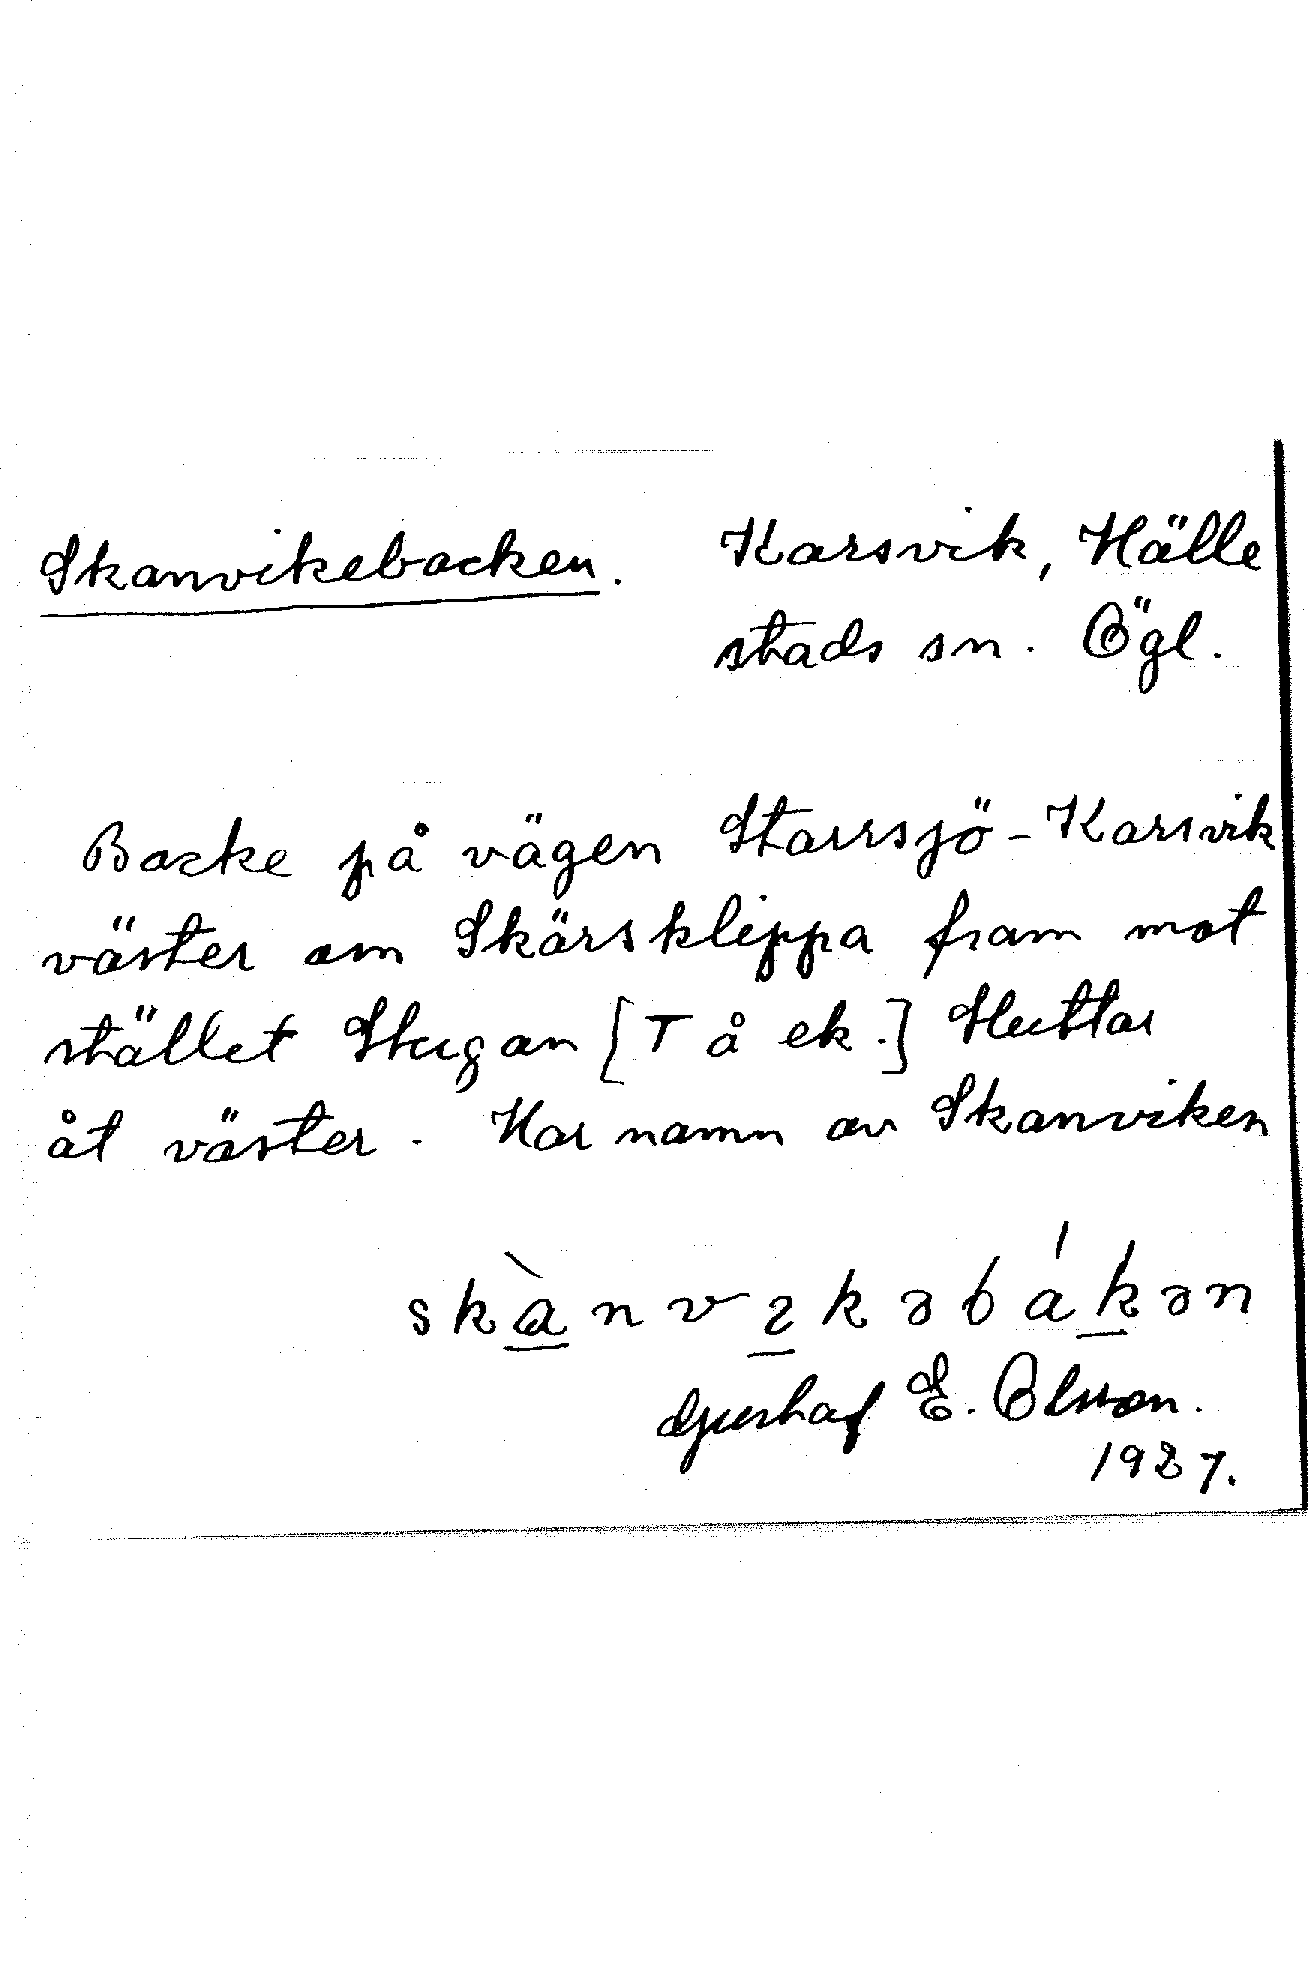 Skanvikebacken. Karsvik, Hälle
stads sn. Ögl.
Backe på vägen Starrsjö - Karsvik
väster om Skärsklippa fram mot
stället Stugan [T å ek.] Sluttar
åt väster. Har namn av Skanviken
skànvɩkəbákən
Gustaf E. Olsson.
1927.